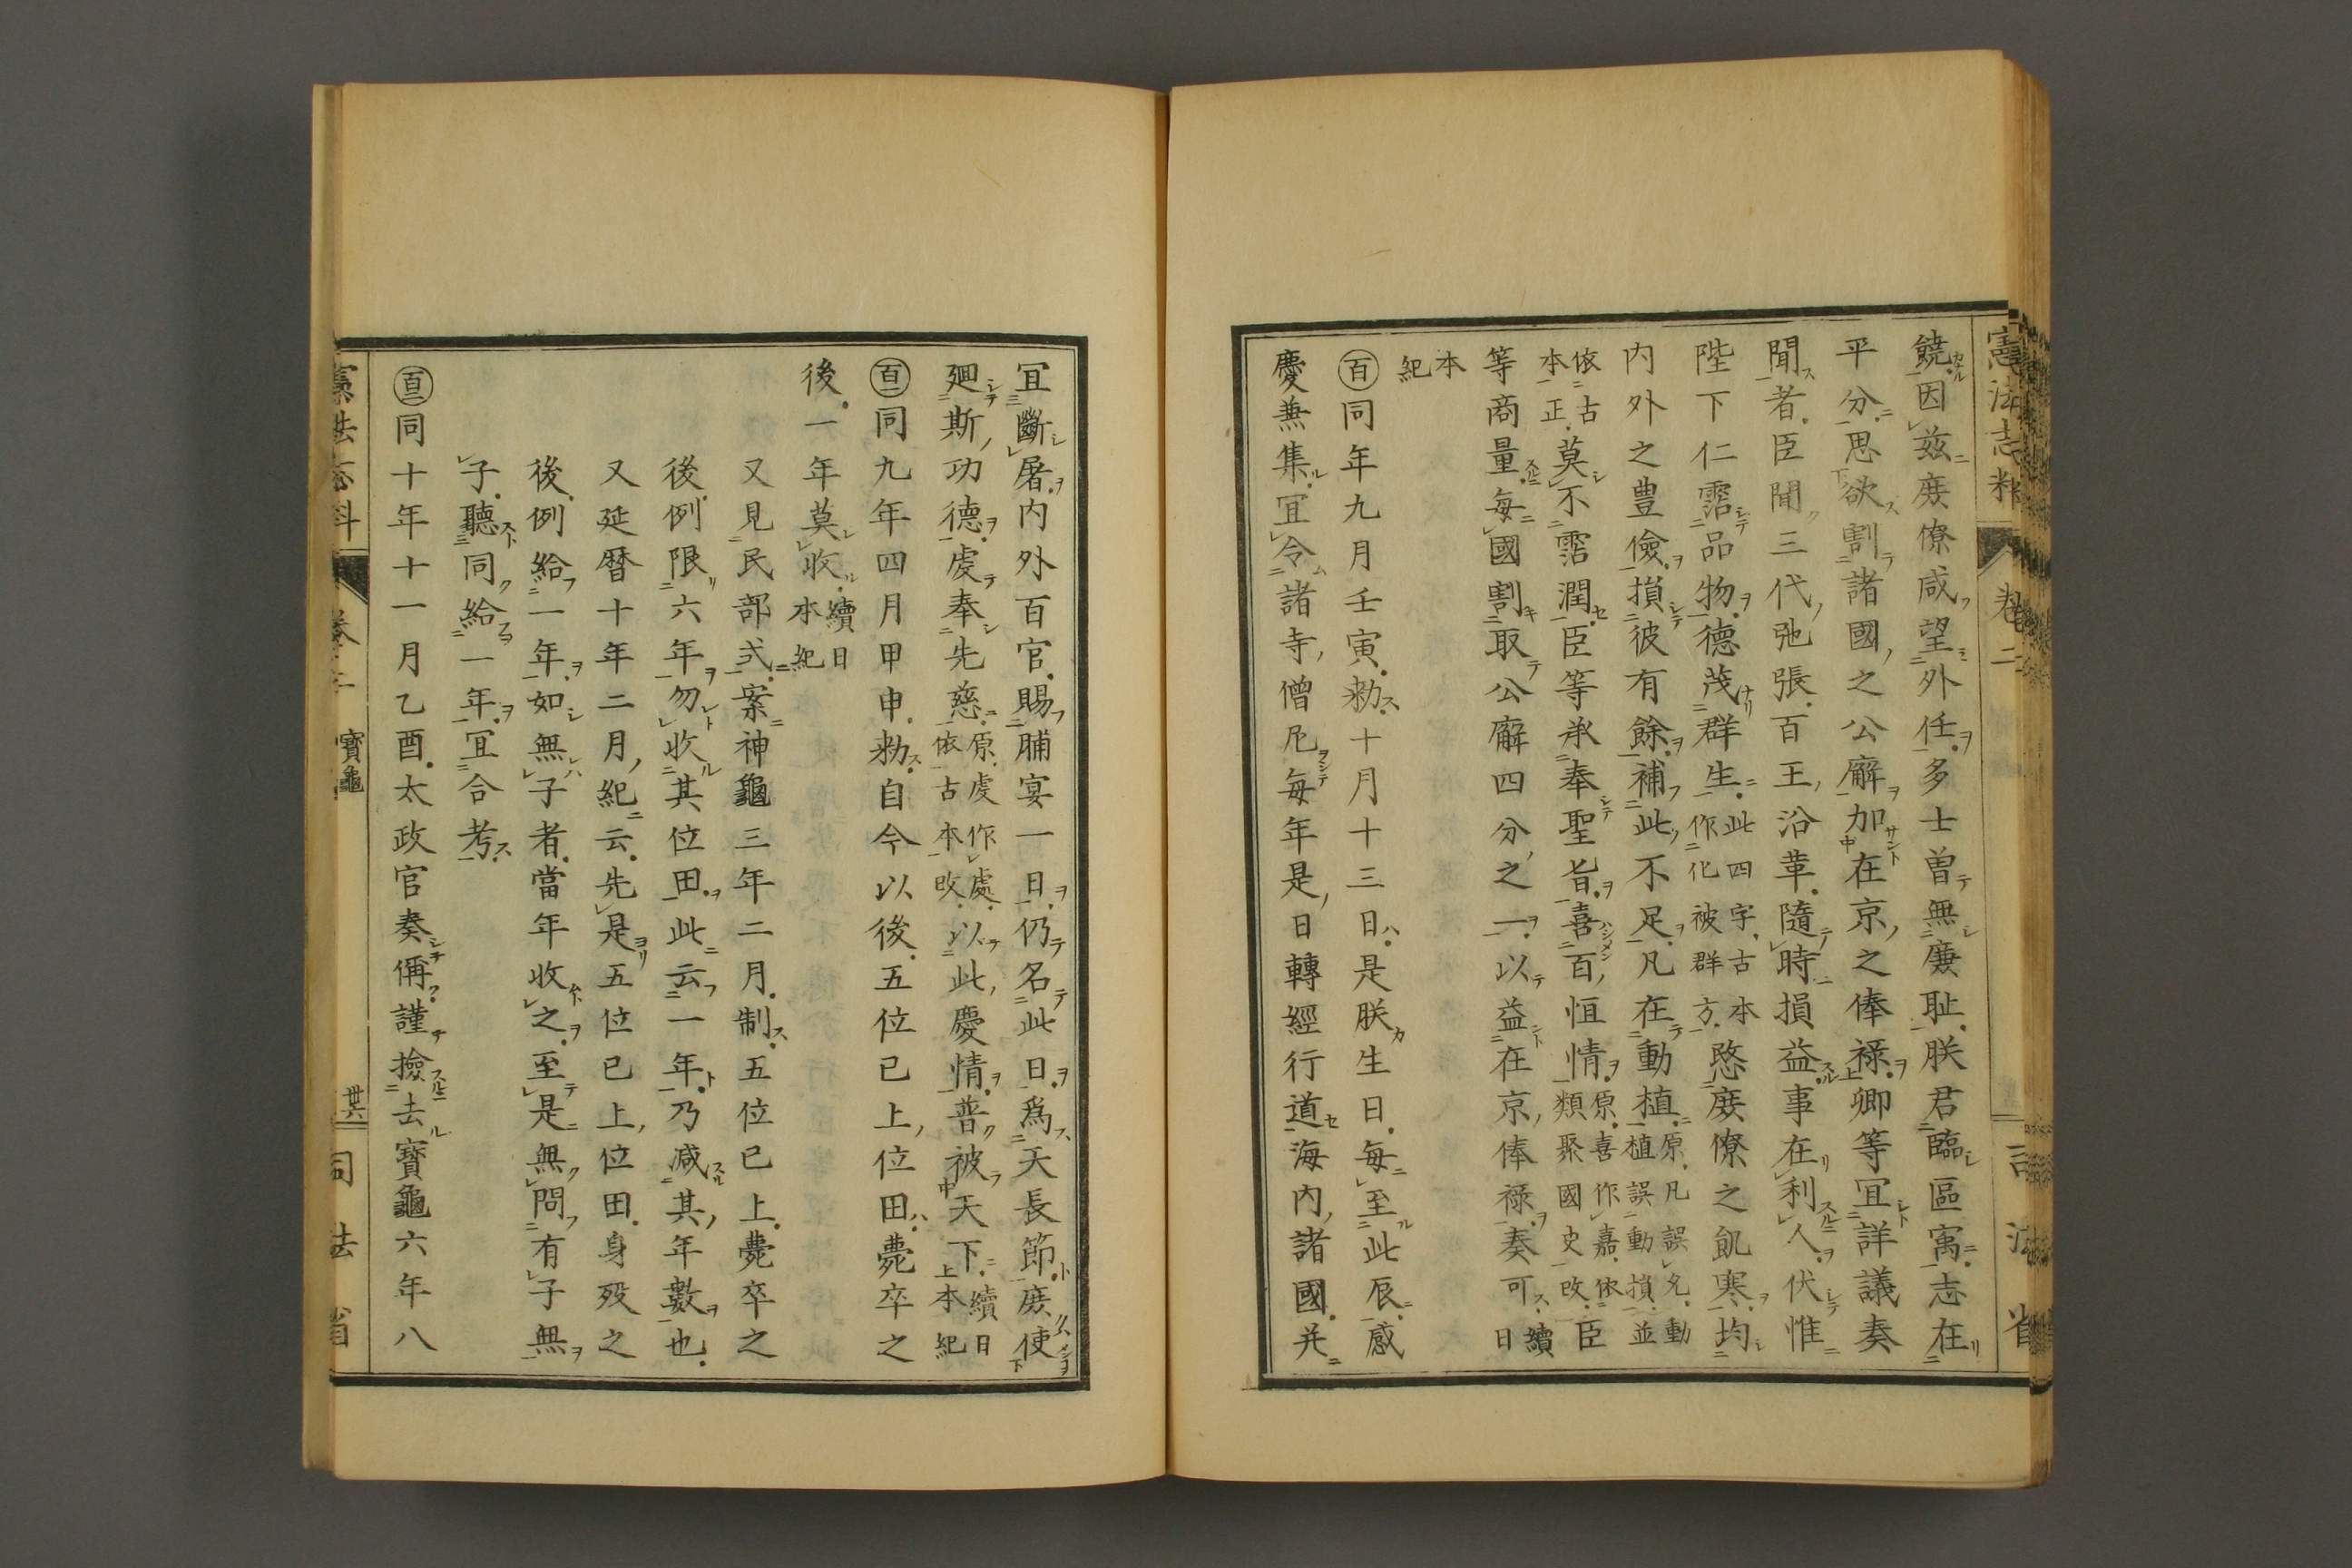 憲法志料 卷二 司法省
饒因茲庻僚咸望外任多士曽無廉耻朕君臨區寓志在
平分思欲割諸國之公廨加在京之俸禄卿等冝詳議奏
聞者臣聞三代弛張百王沿革隨時損益事在利人伏惟
陛下仁霑品物德茂群生此四字古本作化被群方愍庻僚之飢寒均
内外之豊儉損彼有餘補此不足凡在動植原凡誤先動植誤動損並
依古本正莫不霑潤臣等承奉聖旨喜百恒情原喜作嘉依類聚國史改臣
等商量每國割取公廨四分之一以益在京俸禄奏可續日
本紀
百同年九月壬寅勅十月十三日是朕生日每至此辰感
慶兼集冝令諸寺僧尼每年是日轉經行道海内諸國并
冝斷屠内外百官賜酺宴一日仍名此日爲天長節庻使
廻斯功德䖏奉先慈原䖏作處依古本改以此慶情普被天下續日本紀
百一同九年四月甲申勅自今以後五位已上位田薨卒之
後一年莫收續日本紀
又見民部式案神龜三年二月制五位已上薨卒之
後例限六年勿收其位田此云一年乃減其年數也
又延暦十年二月紀云先是五位已上位田身歿之
後例給一年如無子者當年收之至是無問有子無
子聽同給一年冝合考
百二同十年十一月乙酉太政官奏偁謹撿去寶龜六年八
憲法志料 卷二 寶龜 廿六 司法省